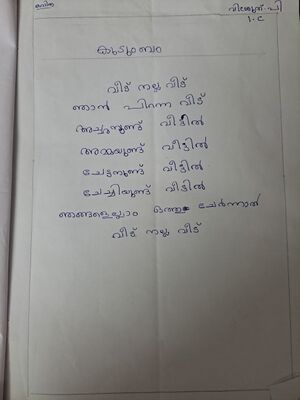 കവിത
വിഷ്ണു പി
1. C
കുടുംബം
വീട് നല്ല വീട്
ഞാൻ പിറന്ന വീട്
അച്ഛനുണ്ട് വീട്ടിൽ
അമ്മയുണ്ട് വീട്ടിൽ
ചേട്ടനുണ്ട് വീട്ടിൽ
ചേച്ചിയുണ്ട് വീട്ടിൽ
ഞങ്ങളെല്ലാം ഒത്തു ചേർന്നാൽ
വീട് നല്ല വീട്